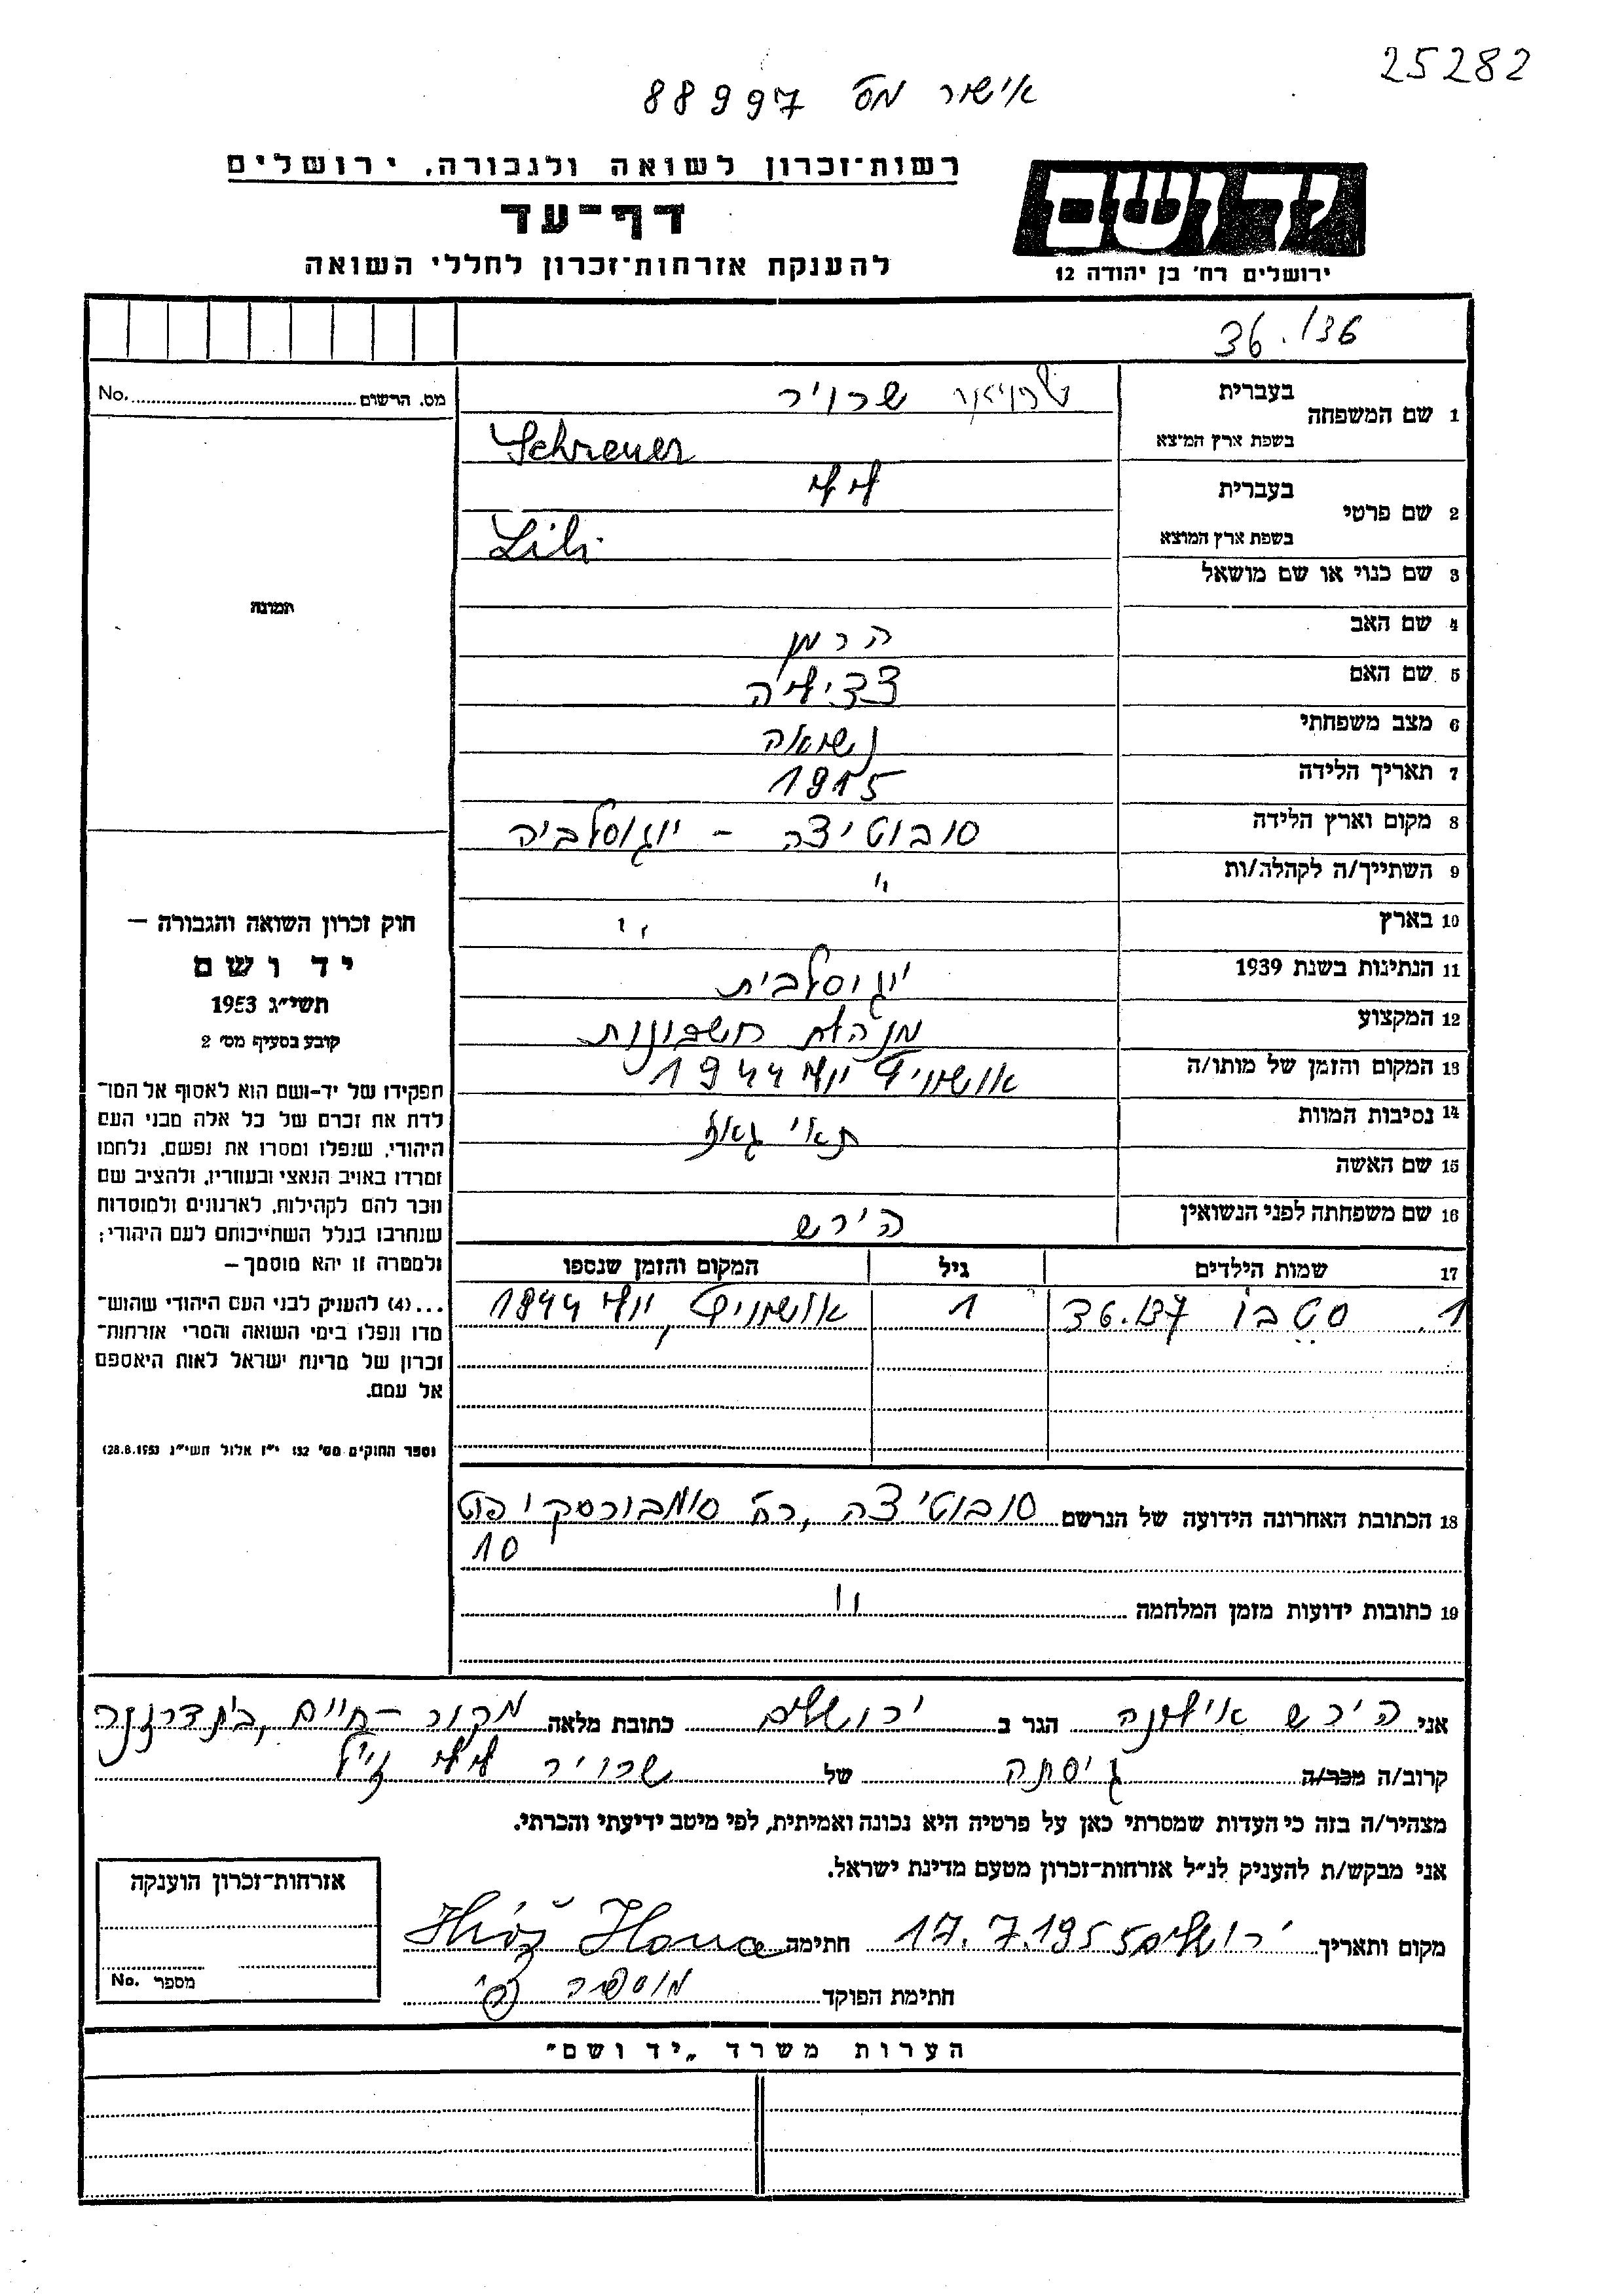 25282
אישור מס 88997
רשות־זכרון לשואה ולגבורה, ירושלים
דף־עד
להענקת אזרחות־זכרון לחללי השואה
יד ושם
ירושלים רח׳ בן יהודה 12
36./36
מס. הרשום No.
1 שם המשפחה
בעברית שרויר
בשפת ארץ המוצא Schreuer
2 שם פרטי
בעברית לילי
בשפת ארץ המוצא Lili
3 שם כנוי או שם מושאל
4 שם האב הרמן
5 שם האם צציליה
6 מצב משפחתי נשואה
7 תאריך הלידה 1915
8 מקום וארץ הלידה סובוטיצה - יוגוסלביה
9 השתייך/ה לקהלה/ות "
10 בארץ "
11 הנתינות בשנת 1939 יוגוסלבית
12 המקצוע מנהלת חשבונות
13 המקום והזמן של מותו/ה אושויץ יולי 1944
14 נסיבות המוות תאי גאז
15 שם האשה
16 שם משפחתה לפני הנשואין הירש
17 שמות הילדים גיל המקום והזמן שנספו
1. סטבו 36.137 1 אושויץ, יולי 1944
18 הכתובת האחרונה הידועה של הנרשם סובוטיצה, רח׳ סומבורסקי פוט
10
19 כתובות ידועות מזמן המלחמה "
תמונה
חוק זכרון השואה והגבורה —
יד ושם
תשי״ג 1953
קובע בסעיף מס׳ 2
תפקידו של יד-ושם הוא לאסוף אל המו־
לדת את זכרם של כל אלה מבני העם
היהודי, שנפלו ומסרו את נפשם, נלחמו
ומרדו באויב הנאצי ובעוזריו, ולהציב שם
וזכר להם לקהילות, לארגונים ולמוסדות
שנחרבו בגלל השתייכותם לעם היהודי;
ולמטרה זו יהא מוסמך —
...(4) להעניק לבני העם היהודי שהוש־
מדו ונפלו בימי השואה והמרי אזרחות־
זכרון של מדינת ישראל לאות היאספם
אל עמם.
(ספר החוקים מס׳ 132 י״ז אלול תשי״ג 28.8.1953)
אני הירש אילונה הגר ב ירושלים כתובת מלאה מקור-חיים,
קרוב/ה מכר/ה גיסתה של שרויר לילי ז״ל
מצהיר/ה בזה כי העדות שמסרתי כאן על פרטיה היא נכונה ואמיתית, לפי מיטב ידיעתי והכרתי.
אני מבקש/ת להעניק לנ״ל אזרחות־זכרון מטעם מדינת ישראל.
מקום ותאריך ירושלים 17.7.1955 חתימה Hirš Ilona
חתימת הפוקד
אזרחות־זכרון הוענקה
מספר No.
הערות משרד „יד ושם״